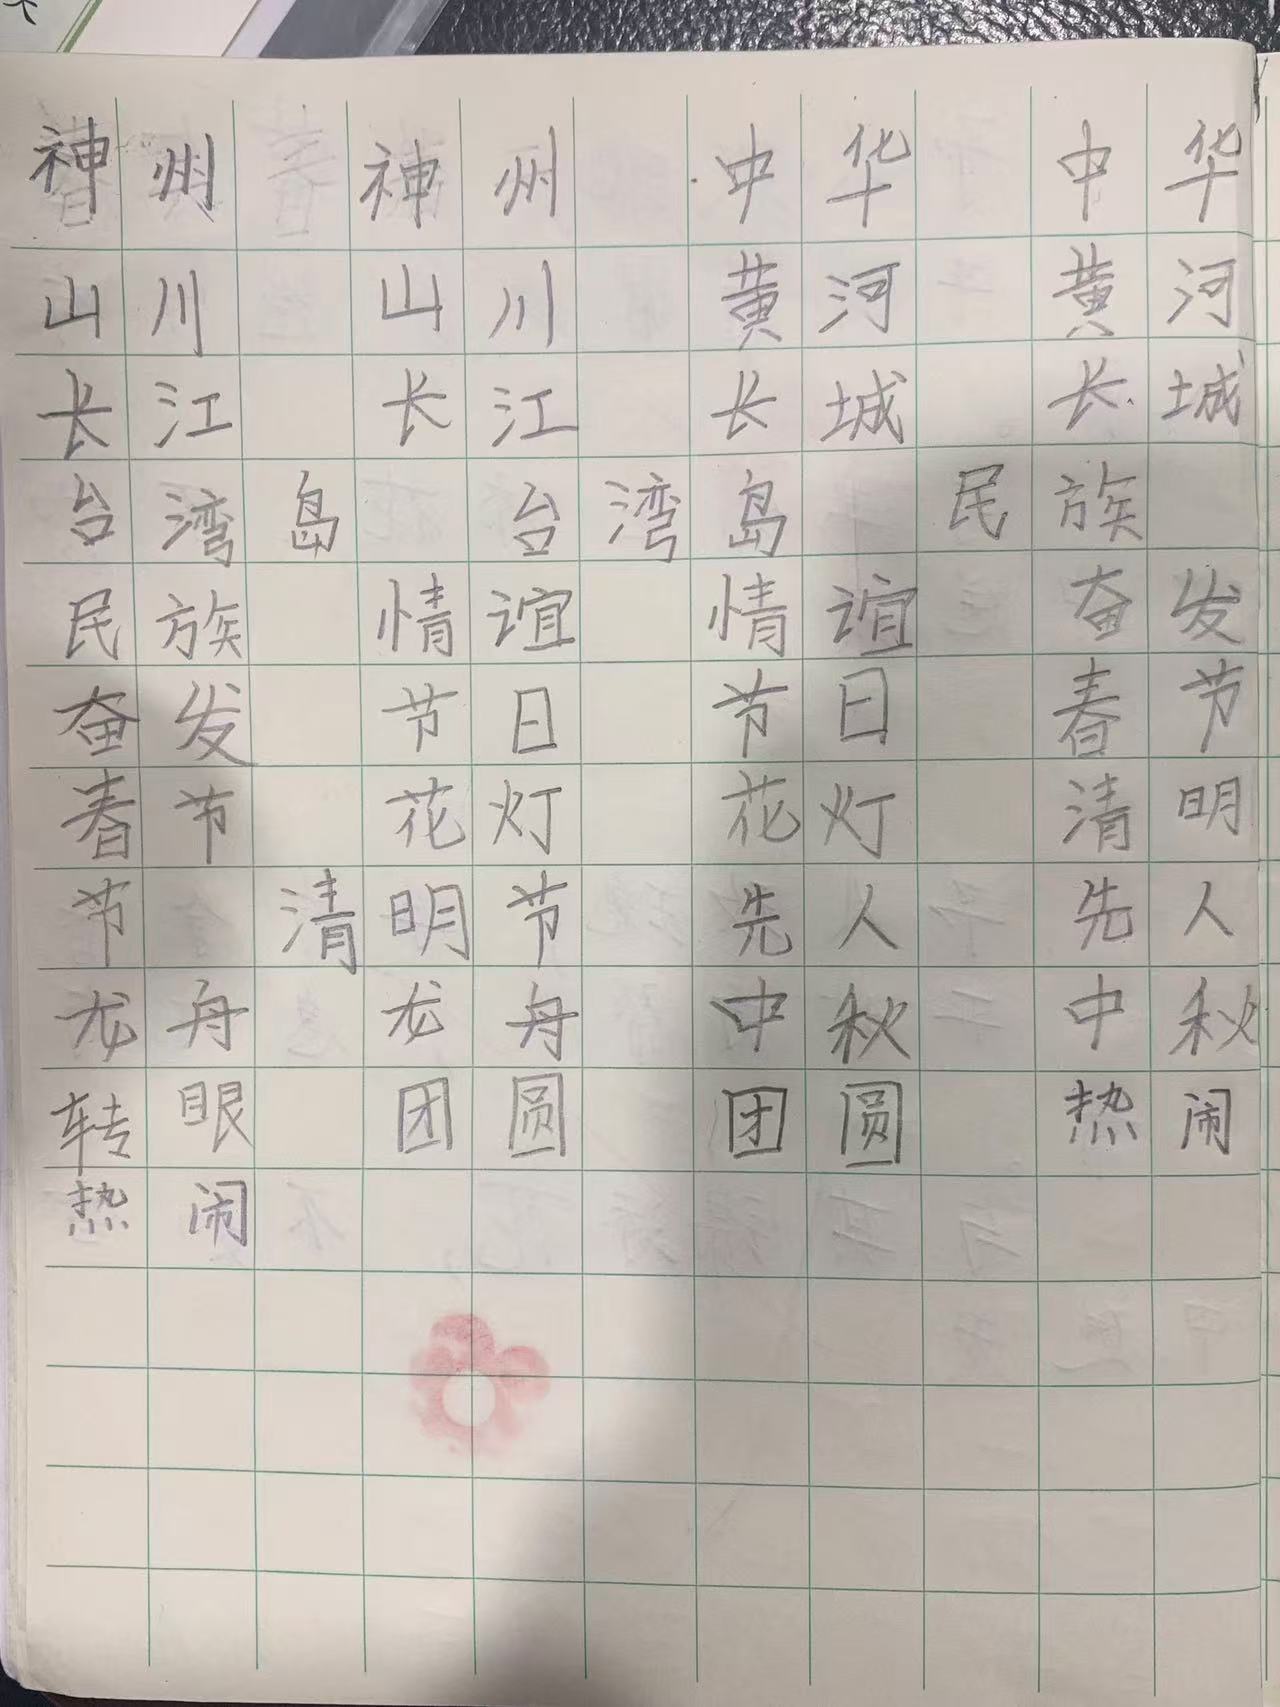 神州 神州 中华 中华
山川 山川 黄河 黄河
长江 长江 长城 长城
台湾岛 台湾岛 民族
民族 情谊 情谊 奋发
奋发 节日 节日 春节
春节 花灯 花灯 清明
节 清明节 先人 先人
龙舟 龙舟 中秋 中秋
转眼 团圆 团圆 热闹
热闹